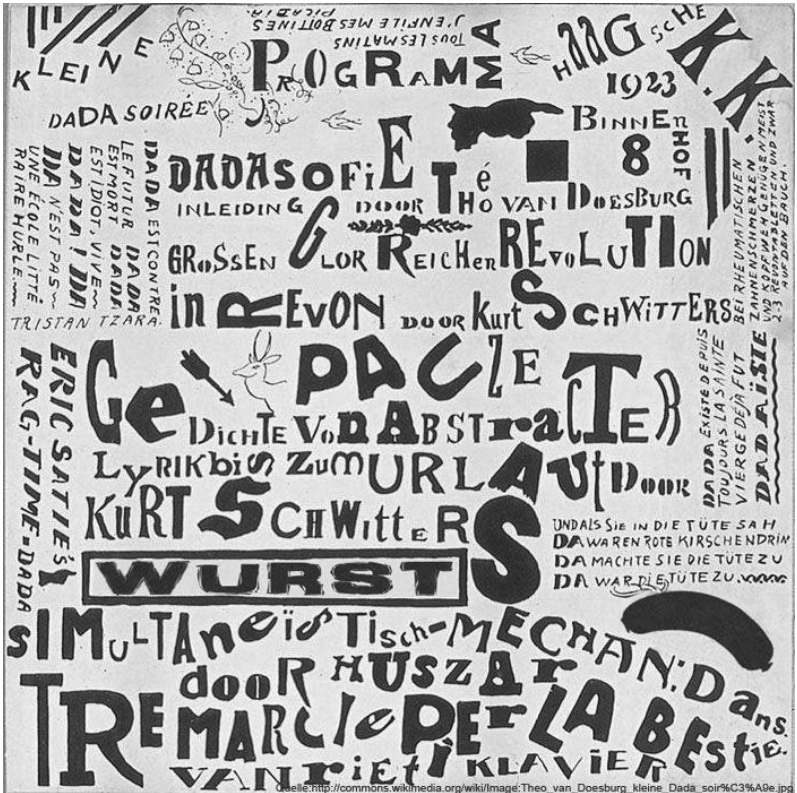 KLEINE
DADA SOIRÉE
TOUS LES MATINS
J'ENFILE MES BOTTINES
PICABIA
PROGRAMMA
HAAG SCHE K.K.
1923
BINNENHOF
8
DADASOFIE
INLEIDING DOOR Théo VAN DOESBURG
GROSSEN GLORREICHEN REVOLUTION
in REVON DOOR Kurt SCHWITTERS
DADA EST CONTRE
LE FUTUR DADA
EST MORT DADA
EST IDIOT, VIVE
DADA! DA
DA N'EST PAS
UNE ÉCOLE LITTÉ
RAIRE HURLE
TRISTAN TZARA.
BEI RHEUMATISCHEN
ZAHNENSCHMERZEN
UND KOPFWEH GENÜGEN MEIST
2-3 REVONTABLETTEN UND ZWAR
AUF DEN BAUCH.
PAUZE
GeDICHTE VonABSTracTER
LYRIK bis ZUM URLAUt DOOR
KURT SCHWitteRS
DADA EXISTE DEPUIS
TOUJOURS LA SAINTE
VIERGE DÉJÀ FUT
DADAÏSTE
ERIC SATIE'S
RAG-TIME-DADA
UND ALS SIE IN DIE TÜTE SAH
DA WAREN ROTE KIRSCHEN DRIN
DA MACHTE SIE DIE TÜTE ZU
DA WAR DIE TÜTE ZU.
WURST
SIMULTANeïsTisch-MECHAN: Dans.
dooR HUSZAr
TRE MARCIe PEr LA BEStie.
VAN rieti KLAVIER
Quelle:http://commons.wikimedia.org/wiki/Image:Theo_van_Doesburg_kleine_Dada_soir%C3%A9e.jpg